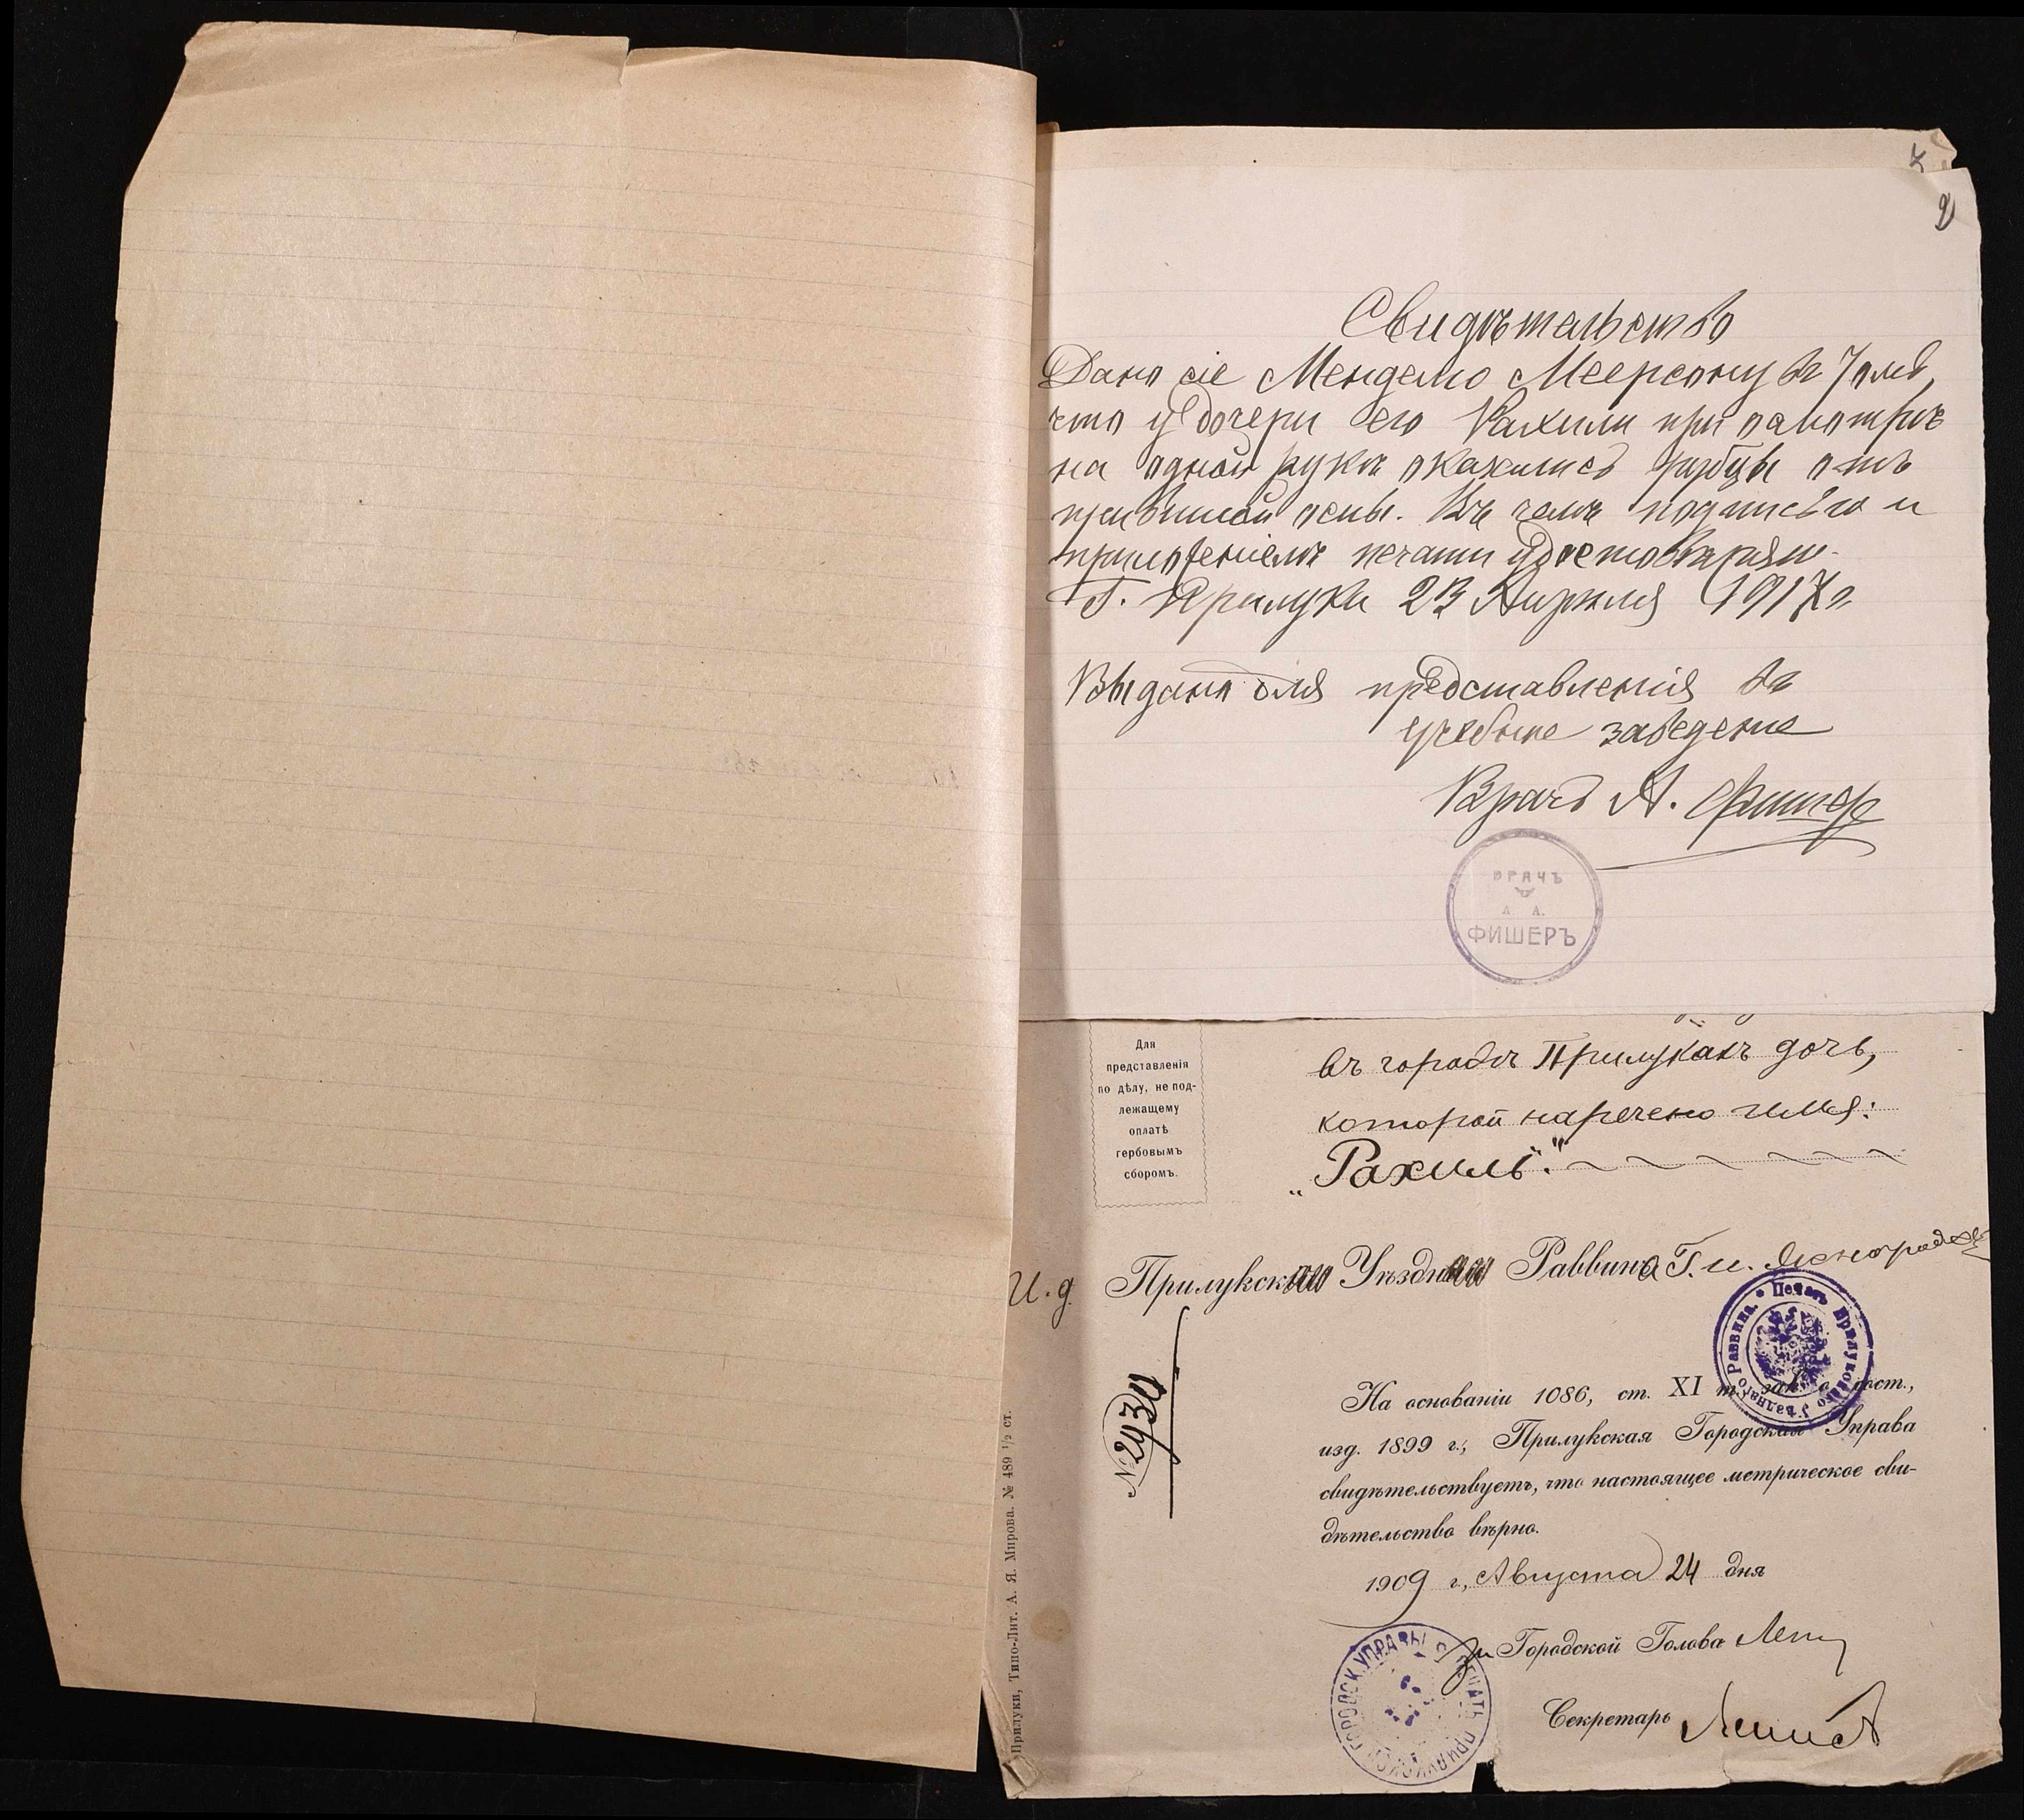 2
Свидѣтельство
Дано сіе Менделю Меерсону въ томъ,
что у дочери его Рахили при осмотрѣ
на одной рукѣ оказались рубцы отъ
привитой оспы. Въ чемъ подписью и
приложеніемъ печати удостовѣряю.
Г. Прилуки 23 Апрѣля 1917 г.
Выдано для представленія въ
учебное заведеніе
Врачъ А. Фишер
ВРАЧЪ
А. А.
ФИШЕРЪ
Для
представленія
по дѣлу, не под-
лежащему
оплатѣ
гербовымъ
сборомъ.
въ городѣ Прилукахъ дочь,
которой наречено имя:
„Рахиль“.
И. д. Прилукск Уѣздн Раввина Г. И.
Печать Прилукскаго Уѣзднаго Раввина
№ 2934
На основаніи 1086, ст. XI т. зак. о сост.,
изд. 1899 г., Прилукская Городская Управа
свидѣтельствуетъ, что настоящее метрическое сви-
дѣтельство вѣрно.
1909 г., Августа 24 дня
за Городской Голова
Секретарь
ПЕЧАТЬ ПРИЛУКСКОЙ ГОРОДСК. УПРАВЫ
Прилуки, Типо-Лит. А. Я. Мирова. № 489 1/2 ст.